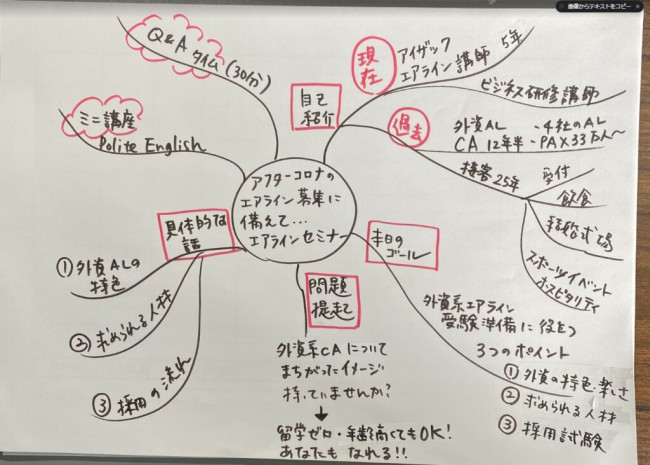 画像からテキストをコピー
Q&A
タイム(30分)
ミニ講座
Polite English
自己
紹介
現在
アイザック
エアライン講師 5年
ビジネス研修講師
過去
外資AL
CA 12年半
・4社のAL
・PAX33万人〜
接客25年
受付
飲食
結婚式場
スポーツイベント
ホスピタリティ
アフターコロナの
エアライン募集に
備えて...
エアラインセミナー
本日の
ゴール
外資系エアライン
受験準備に役立つ
3つのポイント
① 外資の特色・楽しさ
② 求められる人材
③ 採用試験
問題
提起
外資系CAについて
まちがったイメージ
持っていませんか?
↓
留学ゼロ・年齢高くてもOK!
あなたもなれる!!
具体的な
話
① 外資ALの
特色
② 求められる人材
③ 採用の流れ